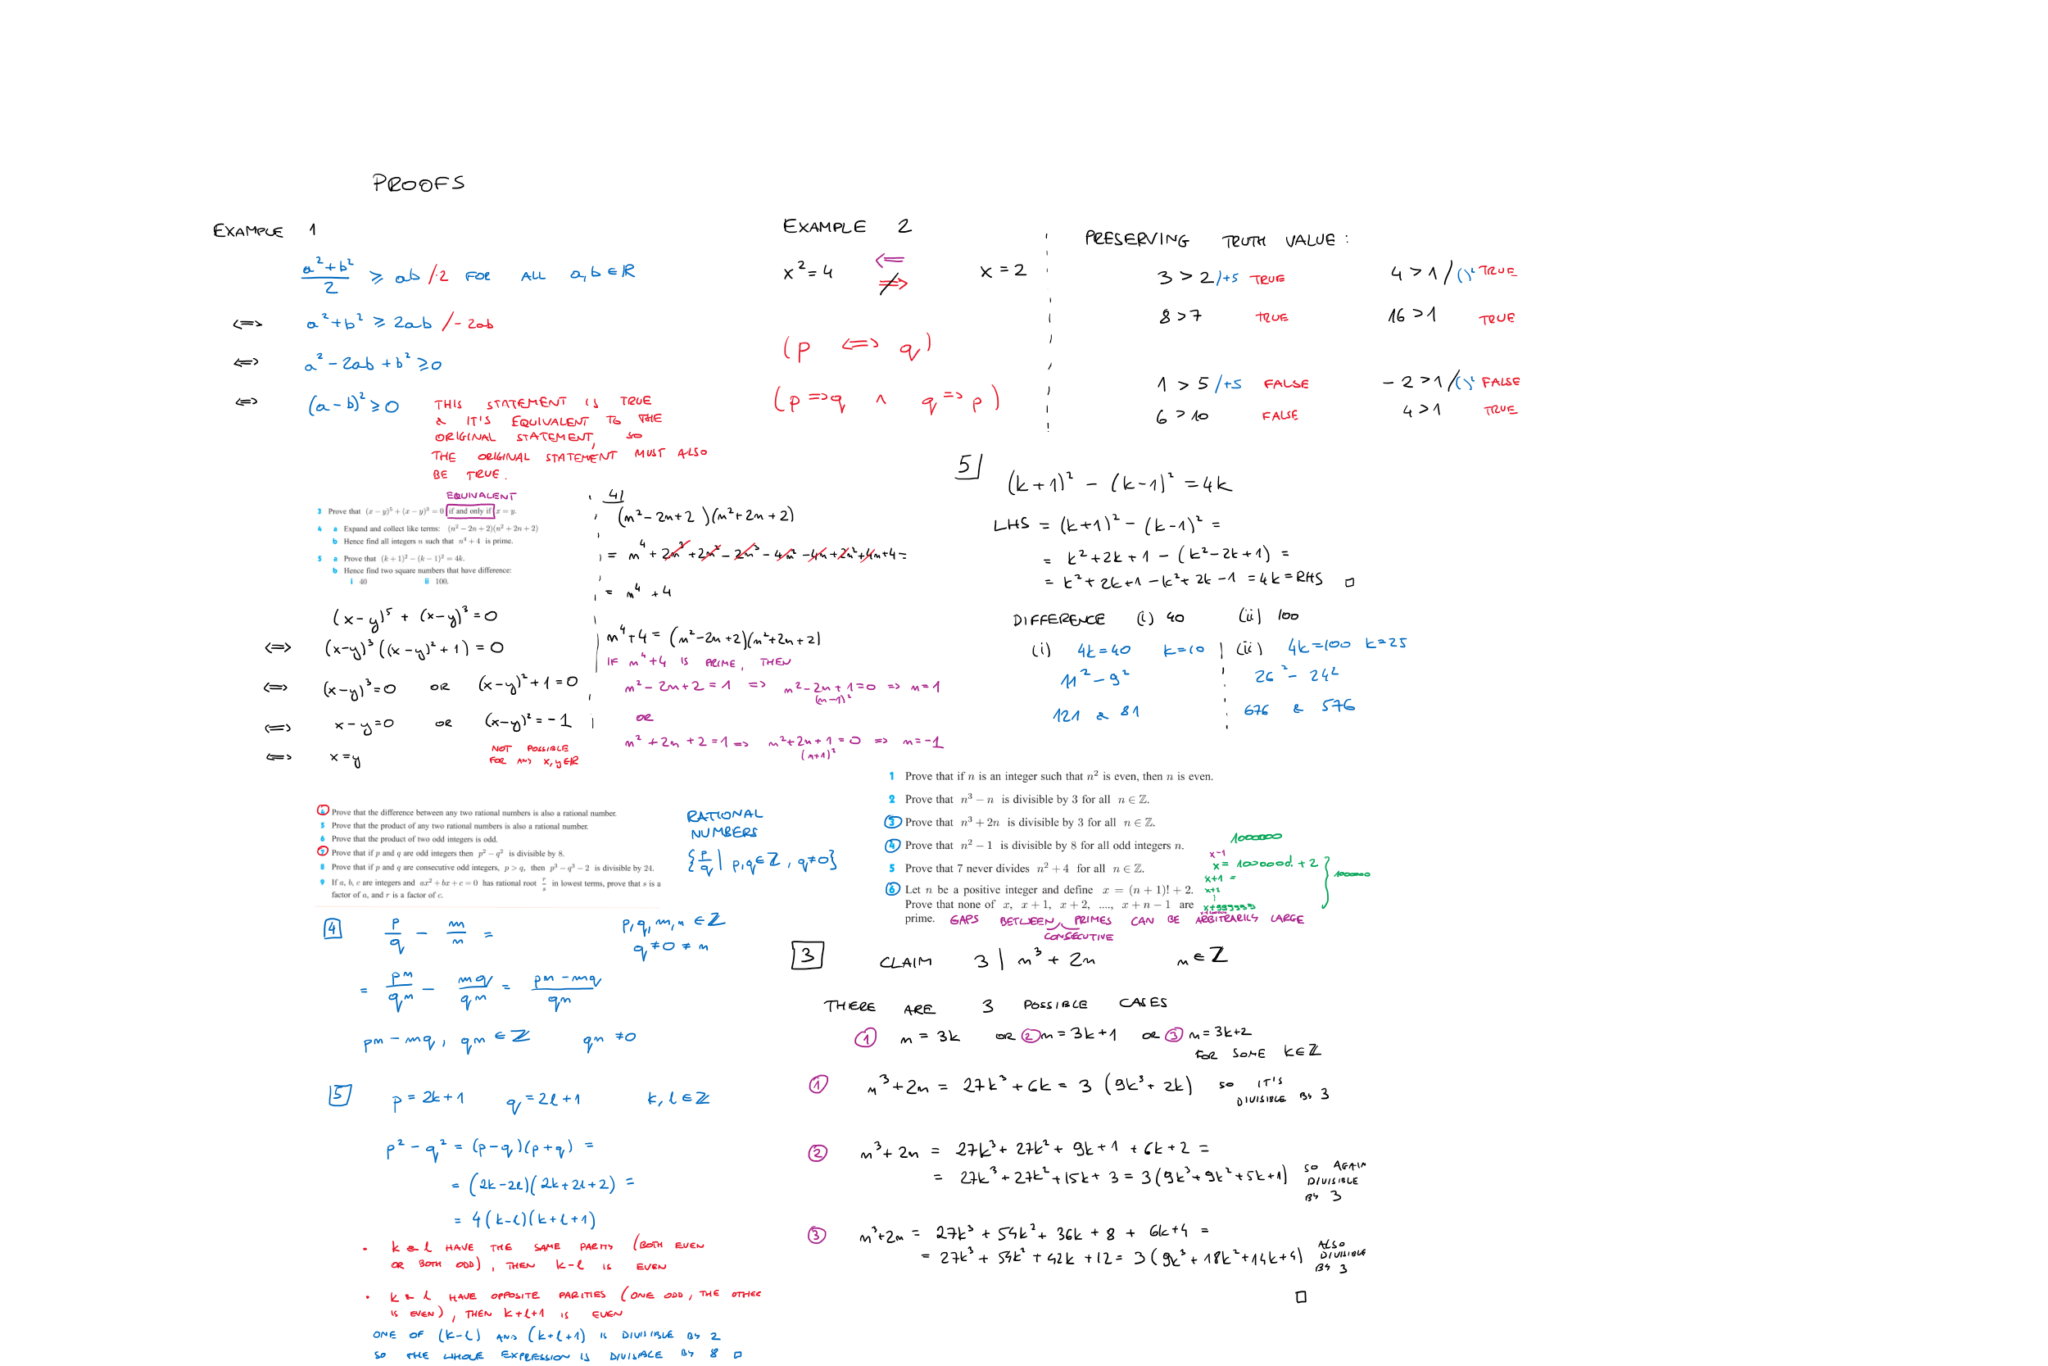 PROOFS
EXAMPLE 1
(a²+b²)/2 ≥ ab /·2 FOR ALL a,b ∈ ℝ
<=> a²+b² ≥ 2ab /-2ab
<=> a² - 2ab + b² ≥ 0
<=> (a-b)² ≥ 0
THIS STATEMENT IS TRUE
& IT'S EQUIVALENT TO THE
ORIGINAL STATEMENT, SO
THE ORIGINAL STATEMENT MUST ALSO
BE TRUE.
EXAMPLE 2
x² = 4 <= ≠> x = 2
(p <=> q)
(p => q ∧ q => p)
PRESERVING TRUTH VALUE:
3 > 2 /+5 TRUE
8 > 7 TRUE
4 > 1 /()² TRUE
16 > 1 TRUE
1 > 5 /+5 FALSE
6 > 10 FALSE
-2 > 1 /()² FALSE
4 > 1 TRUE
EQUIVALENT
3 Prove that (x − y)⁵ + (x − y)³ = 0 if and only if x = y.
4 a Expand and collect like terms: (n² − 2n + 2)(n² + 2n + 2)
b Hence find all integers n such that n⁴ + 4 is prime.
5 a Prove that (k + 1)² − (k − 1)² = 4k.
b Hence find two square numbers that have difference:
i 40 ii 100.
(x-y)⁵ + (x-y)³ = 0
<=> (x-y)³((x-y)²+1) = 0
<=> (x-y)³=0 OR (x-y)²+1=0
<=> x-y=0 OR (x-y)²=-1
<=> x=y
NOT POSSIBLE
FOR ANY x,y∈ℝ
4
(n²-2n+2)(n²+2n+2)
= n⁴+2n³+2n²-2n³-4n²-4n+2n²+4n+4=
= n⁴+4
n⁴+4=(n²-2n+2)(n²+2n+2)
IF n⁴+4 IS PRIME, THEN
n²-2n+2=1 => n²-2n+1=0 => n=1
(n-1)²
OR
n²+2n+2=1 => n²+2n+1=0 => n=-1
(n+1)²
5
(k+1)² - (k-1)² = 4k
LHS = (k+1)² - (k-1)² =
= k²+2k+1 - (k²-2k+1) =
= k²+2k+1-k²+2k-1 = 4k = RHS □
DIFFERENCE (i) 40 (ii) 100
(i) 4k=40 k=10
11² - 9²
121 & 81
(ii) 4k=100 k=25
26² - 24²
676 & 576
4 Prove that the difference between any two rational numbers is also a rational number.
5 Prove that the product of any two rational numbers is also a rational number.
6 Prove that the product of two odd integers is odd.
7 Prove that if p and q are odd integers then p² − q² is divisible by 8.
8 Prove that if p and q are consecutive odd integers, p > q, then p³ − q³ − 2 is divisible by 24.
9 If a, b, c are integers and ax² + bx + c = 0 has rational root r/s in lowest terms, prove that s is a
factor of a, and r is a factor of c.
RATIONAL
NUMBERS
{p/q | p,q∈ℤ, q≠0}
4
p/q - m/n =
p,q,m,n ∈ ℤ
q ≠ 0 ≠ n
= pn/qn - mq/qn = (pn-mq)/qn
pn-mq, qn ∈ ℤ qn ≠ 0
5
p=2k+1 q=2l+1 k,l∈ℤ
p²-q² = (p-q)(p+q) =
= (2k-2l)(2k+2l+2) =
= 4(k-l)(k+l+1)
• k & l HAVE THE SAME PARITY (BOTH EVEN
OR BOTH ODD), THEN k-l IS EVEN
• k & l HAVE OPPOSITE PARITIES (ONE ODD, THE OTHER
IS EVEN), THEN k+l+1 IS EVEN
ONE OF (k-l) AND (k+l+1) IS DIVISIBLE BY 2
SO THE WHOLE EXPRESSION IS DIVISIBLE BY 8 □
1 Prove that if n is an integer such that n² is even, then n is even.
2 Prove that n³ − n is divisible by 3 for all n ∈ ℤ.
3 Prove that n³ + 2n is divisible by 3 for all n ∈ ℤ.
4 Prove that n² − 1 is divisible by 8 for all odd integers n.
5 Prove that 7 never divides n² + 4 for all n ∈ ℤ.
6 Let n be a positive integer and define x = (n + 1)! + 2.
Prove that none of x, x + 1, x + 2, ...., x + n − 1 are
prime.
1000000
x-1
x = 1000000! + 2
x+1 =
x+999999
1000000
GAPS BETWEEN PRIMES CAN BE ARBITRARILY LARGE
CONSECUTIVE
3
CLAIM 3 | n³+2n n∈ℤ
THERE ARE 3 POSSIBLE CASES
① n = 3k OR ② n = 3k+1 OR ③ n = 3k+2
FOR SOME k∈ℤ
① n³+2n = 27k³+6k = 3(9k³+2k) SO IT'S
DIVISIBLE BY 3
② n³+2n = 27k³+27k²+9k+1+6k+2 =
= 27k³+27k²+15k+3 = 3(9k³+9k²+5k+1)
SO AGAIN
DIVISIBLE
BY 3
③ n³+2n = 27k³+54k²+36k+8+6k+4 =
= 27k³+54k²+42k+12 = 3(9k³+18k²+14k+4)
ALSO
DIVISIBLE
BY 3
□